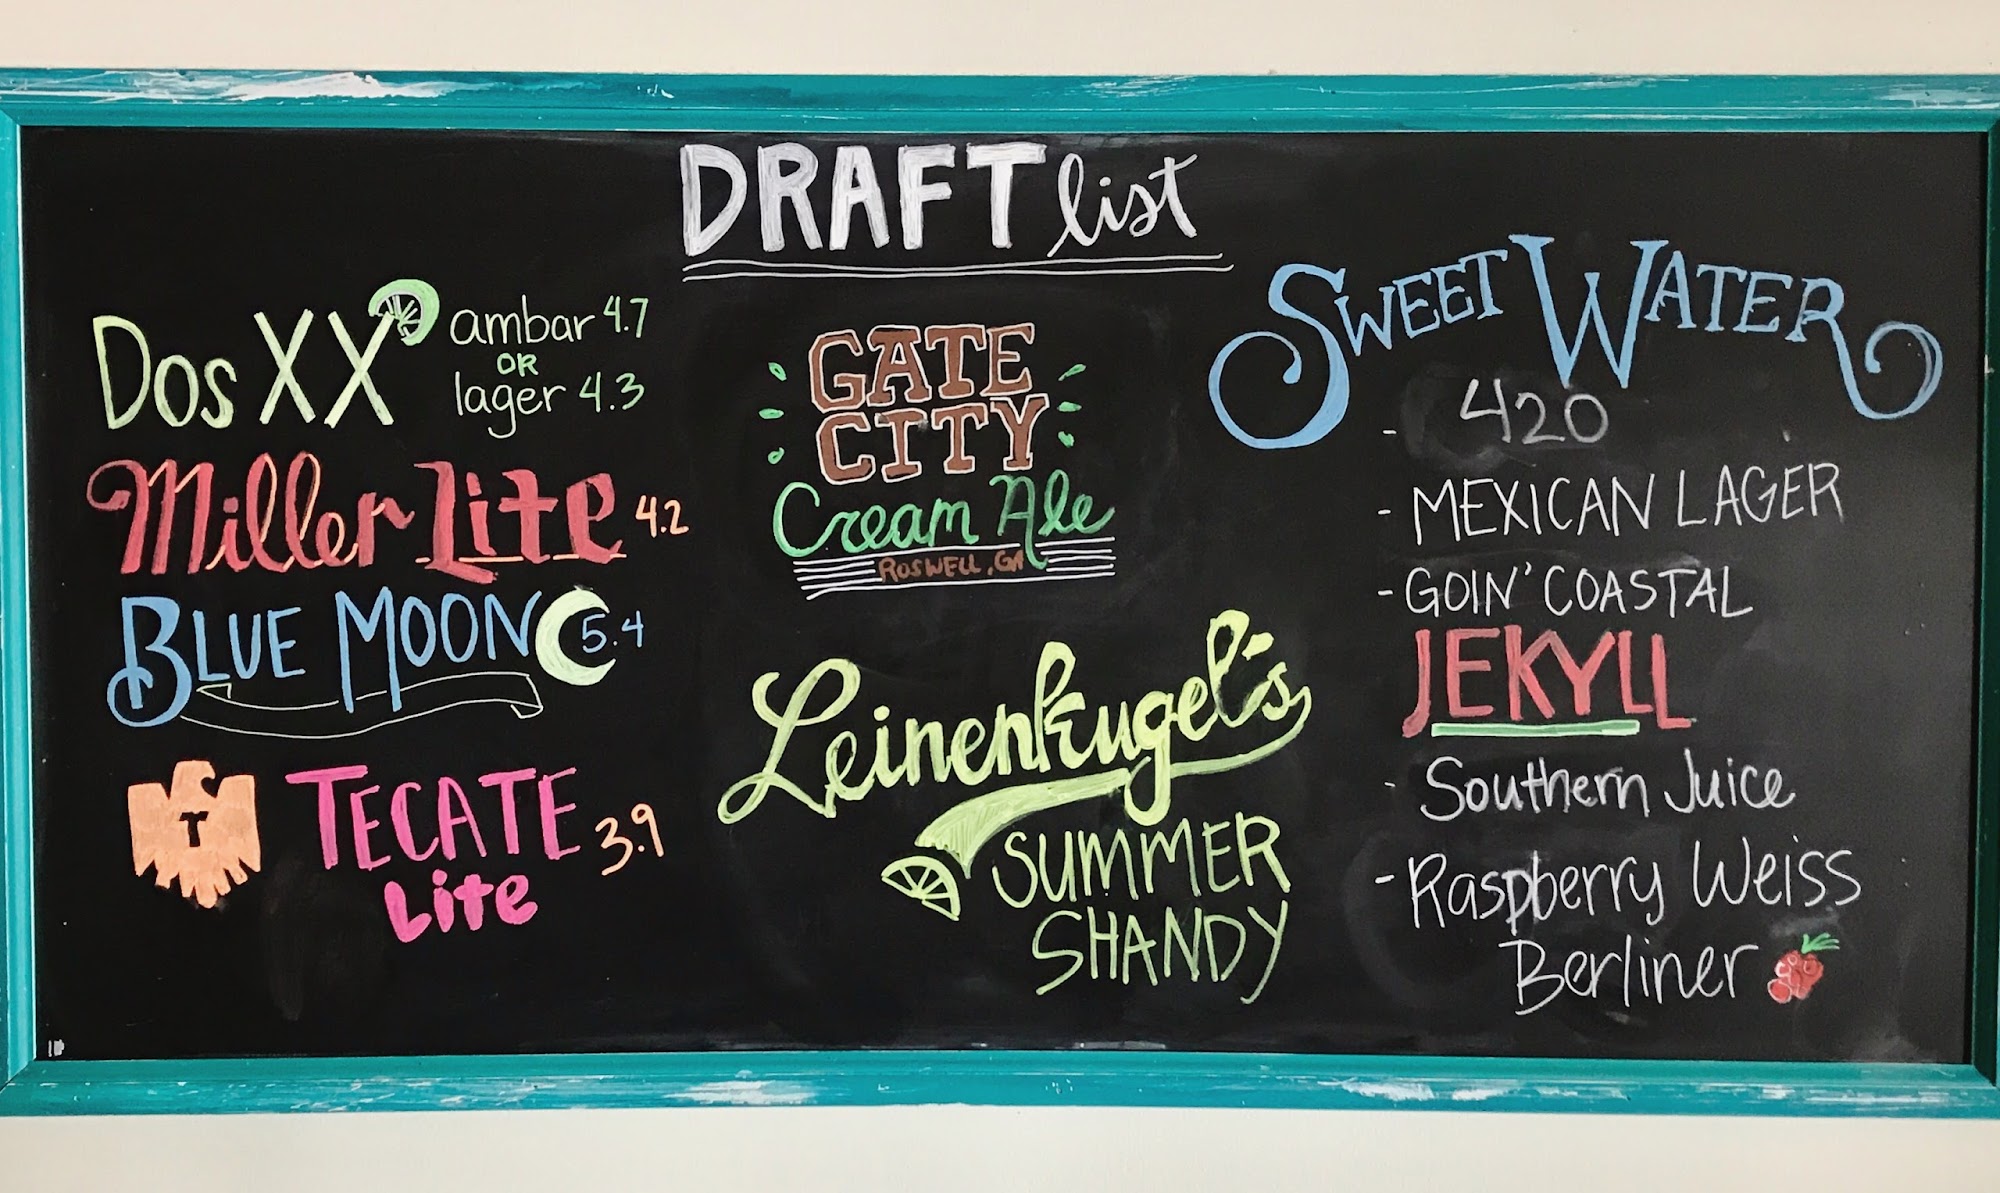 DRAFT list
Dos XX ambar 4.7
OR
lager 4.3
Miller Lite 4.2
BLUE MOON 5.4
T TECATE
Lite 3.9
GATE
CITY
Cream Ale
ROSWELL, GA
Leinenkugel's
SUMMER
SHANDY
SWEET WATER
- 420
- MEXICAN LAGER
- GOIN' COASTAL
JEKYLL
- Southern Juice
- Raspberry Weiss
Berliner